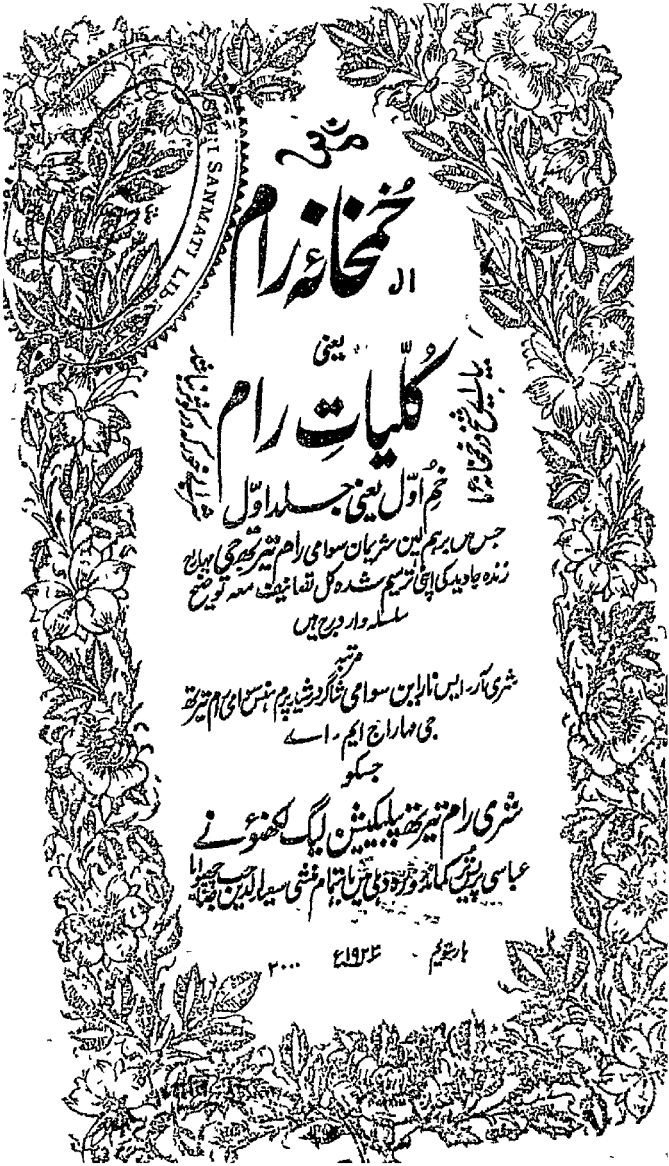 SHI SANMATI LIB
خُمخانۂ رام
یعنی
کُلّیاتِ رام
خُمِ اوّل یعنی جلد اوّل
جس میں برہم لین شریمان سوامی رام تیرتھ جی مہاراج
زندہ جاوید کی اپنی ترمیم شدہ کل تصانیف معہ توضیح
سلسلہ وار درج ہیں
مرتبہ
شری آر۔ ایس نارائن سوامی شاگرد رشید پرم ہنس سوامی رام تیرتھ
جی مہاراج ایم۔ اے
جسکو
شری رام تیرتھ پبلیکیشن لیگ لکھنؤ نے
عباسی پریس دہلی میں باہتمام منشی چھپوایا
بار سوم ۱۹۲۴ء ۲۰۰۰